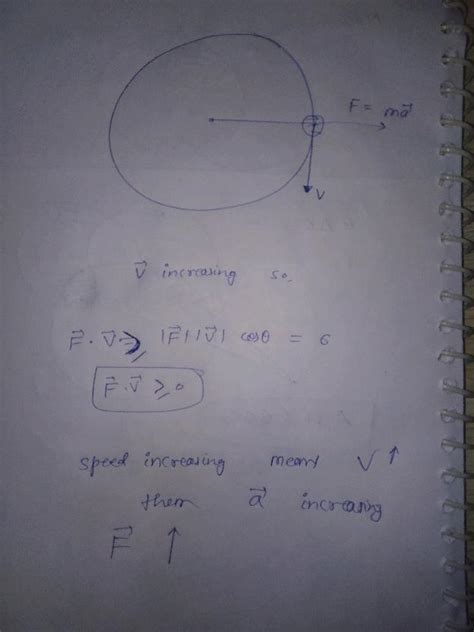 F = ma⃗
V
V⃗ increasing so,
F⃗ . V⃗ ⩾ |F⃗| |V⃗| cosθ = 0
F⃗.V⃗ ⩾ 0
speed increasing means V ↑
then a⃗ increasing
F⃗ ↑